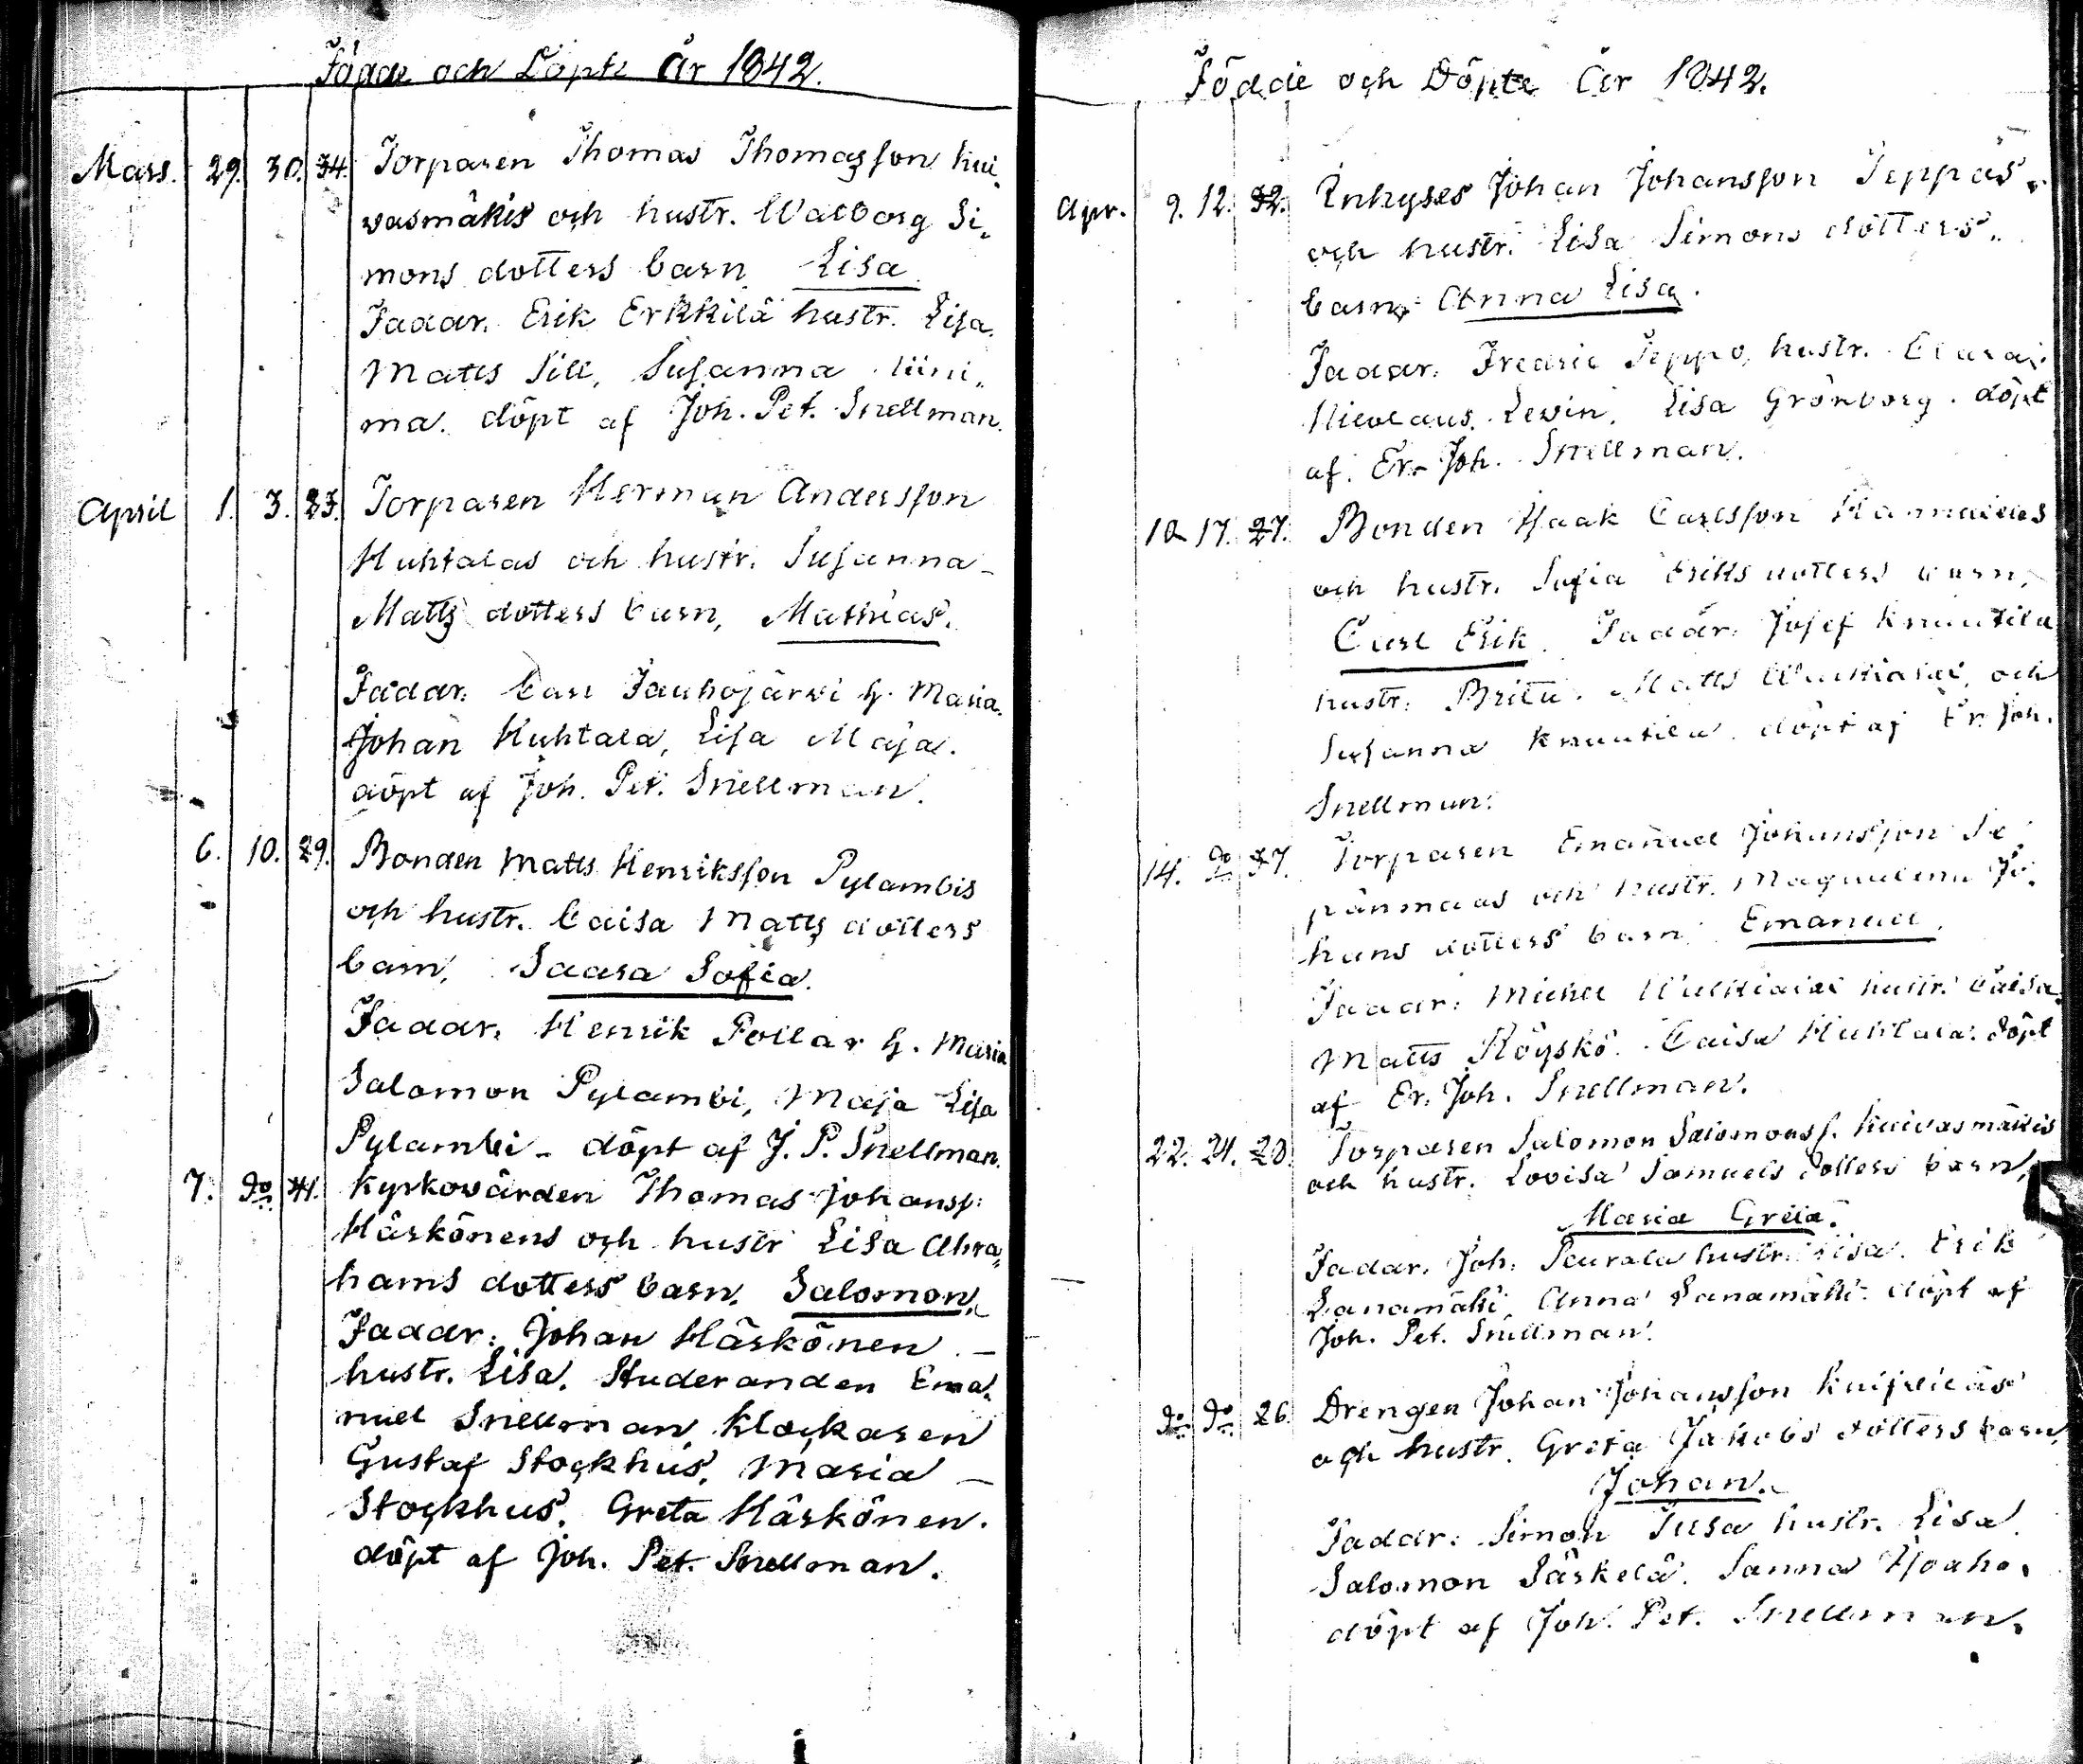 Födde och Döpte År 1842.
Mars. 29. 30. 34. Torparen Thomas Thomasson Kui„
vasmäkis och hustr. Walborg Si„
mons dotters barn Lisa
Faddr. Erik Erkkilä hustr. Lisa.
Matts Sill, Susanna Niini„
ma. döpt af Joh. Pet. Snellman.
April 1. 3. 23. Torparen Herman Andersson
Huhtalas och hustr. Susanna
Matts dotters barn, Mathias.
Faddr. Carl Jauhojärvi h. Maria.
Johan Huhtala, Lisa Maja.
döpt af Joh. Pet. Snellman.
6. 10. 29. Bonden Matts Henriksson Pylambis
och hustr. Caisa Matts dotters
barn, Saara Sofia.
Faddr. Henrik Pollar h. Maria
Salomon Pylambi, Maja Lisa
Pylambi – döpt af J. P. Snellman.
7. do 41. Kyrkovärden Thomas Johanss:
Härkönens och hustr Lisa Abra„
hams dotters barn. Salomon.
Faddr: Johan Härkönen –
hustr. Lisa. Studeranden Ema„
nuel Snellman, Klockaren
Gustaf Stockhus, Maria –
Stockhus. Greta Härkönen.
döpt af Joh. Pet. Snellman.
Födde och Döpte År 1842.
Apr. 9. 12. 32. Inhyses Johan Johansson Seppäs
och hustr. Lisa Simons dotters
barn Anna Lisa.
Faddr. Fredric Seppo, hustr. Clara.
Nicolaus Levin. Lisa Grönborg. döpt
af Er. Joh. Snellman.
10 17. 27. Bonden Isaak Carlsson Hannuilas
och hustr. Sofia Eriks dotters barn,
Carl Erik. Faddr. Josef Knuutila
hustr. Brita. Matts och
Susanna Knuutila. döpt af Er. Joh.
Snellman.
14. do 37. Torparen Emanuel Johansson Se„
pänmaas och hustr. Magdalena Jo„
hans dotters barn Emanuel.
Faddr: Michel hustr. Caisa.
Matts Röyskö. Caisa Huhtala. döpt
af Er. Joh. Snellman.
22. 24. 28. Torparen Salomon Salomonss. Kuivasmäkis
och hustr. Lovisa Samuels dotters barn,
Maria Greta.
Faddr. Joh. Peurala hustr. Lisa. Erik
Lanamäki, Anna Lanamäki. döpt af
Joh. Pet. Snellman.
do do 26. Drengen Johan Johansson
och hustr. Greta Jakobs dotters barn,
Johan.
Faddr: Simon Tusa hustr. Lisa.
Salomon Särkelä. Sanna Isoaho.
döpt af Joh. Pet. Snellman.